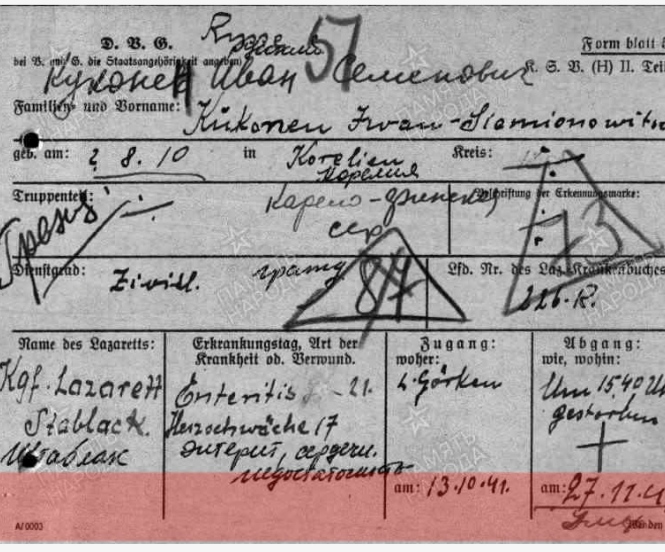 Russe 57
D. V. G. русский Form blatt
bei V. und G. die Staatsangehörigkeit angeben) K. S. V. (H) II. Teil
Куконен Иван Семенович
Familien- und Vorname:
Kükonen Iwan-Siamionowitsch
geb. am: 2. 8. 10 in Korelien Kreis:
Карелия
Truppenteil: Карело-финская Beschriftung der Erkennungsmarke:
сср 73
Гражд.
Dienstgrad: Zivill. гражд 84 Lfd. Nr. des Laz.-Krankenbuches
226-R.
Name des Lazaretts: Erkrankungstag, Art der Krankheit od. Verwund. Zugang: woher: Abgang: wie, wohin:
Kgf. Lazarett Enteritis - 21. L. Görken Um 15.40 Uh
Stablack. Herzschwäche 17 gestorben
Штаблак энтерит, сердечн.
недостаточность
am: 13.10.41. am: 27.11.4
A/0003
ПАМЯТЬ НАРОДА